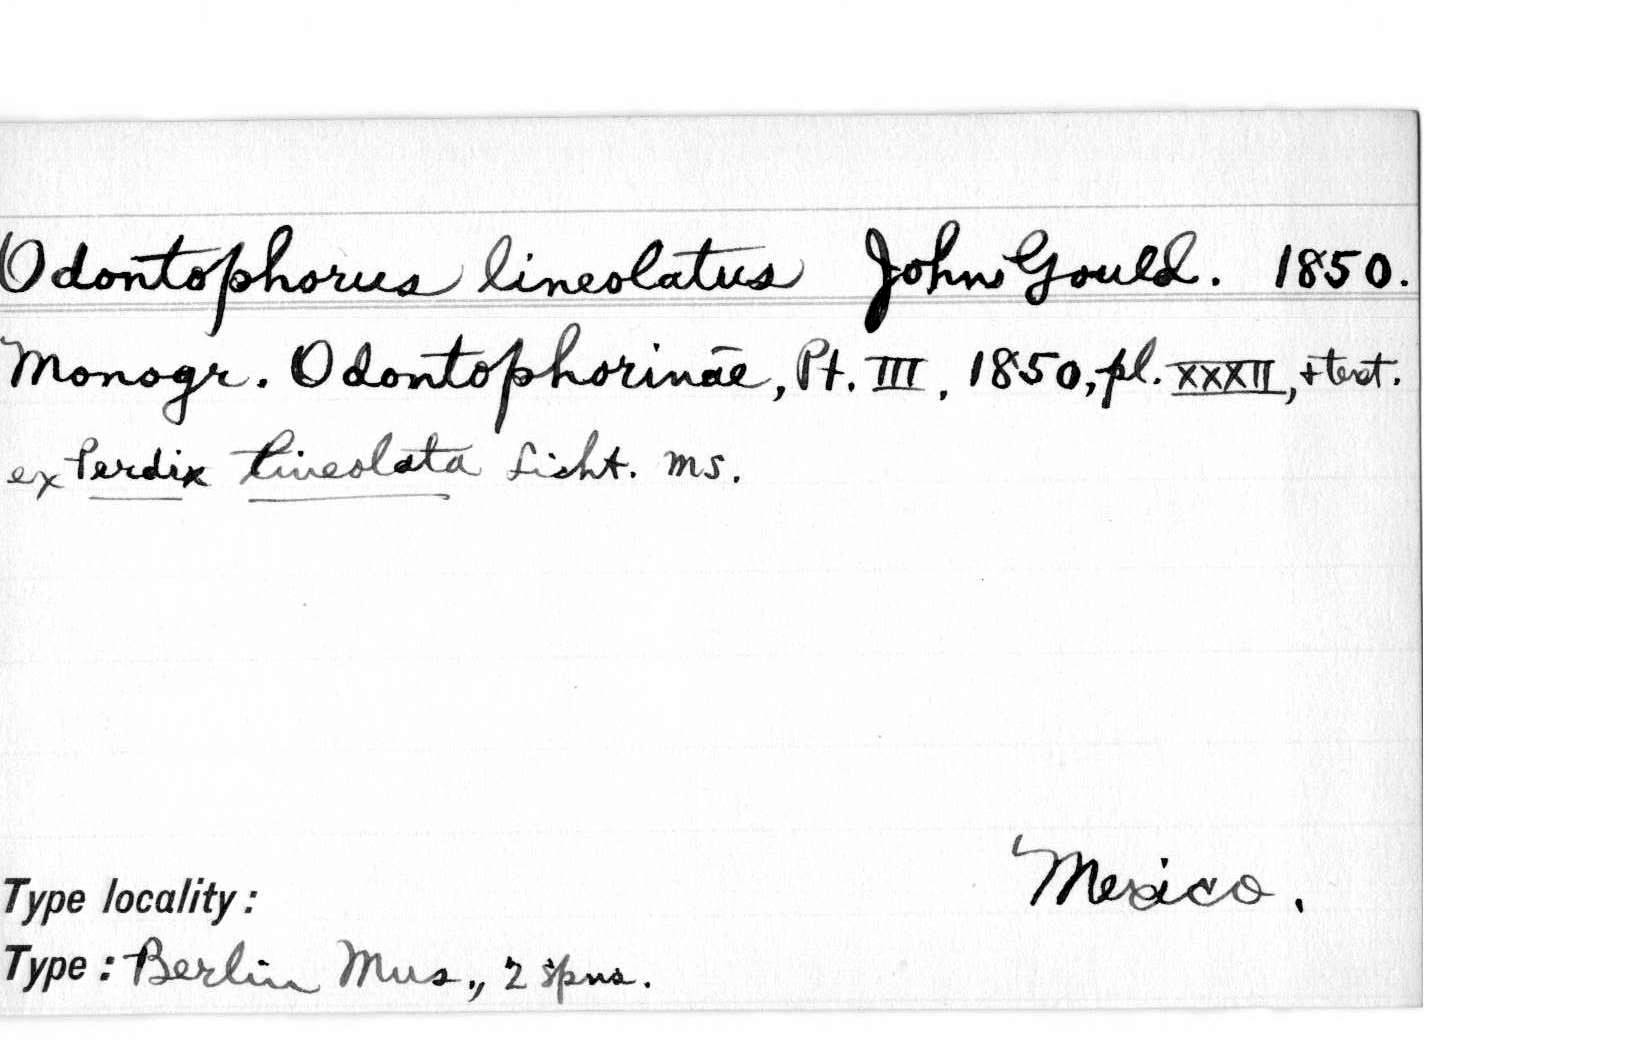 Odontophorus lineolatus John Gould. 1850.
Monogr. Odontophorinae, Pt. III, 1850, pl. XXXII, + text.
ex Perdix lineolata Licht. MS.
Mexico.
Type locality:
Type: Berlin Mus., 2 spns.